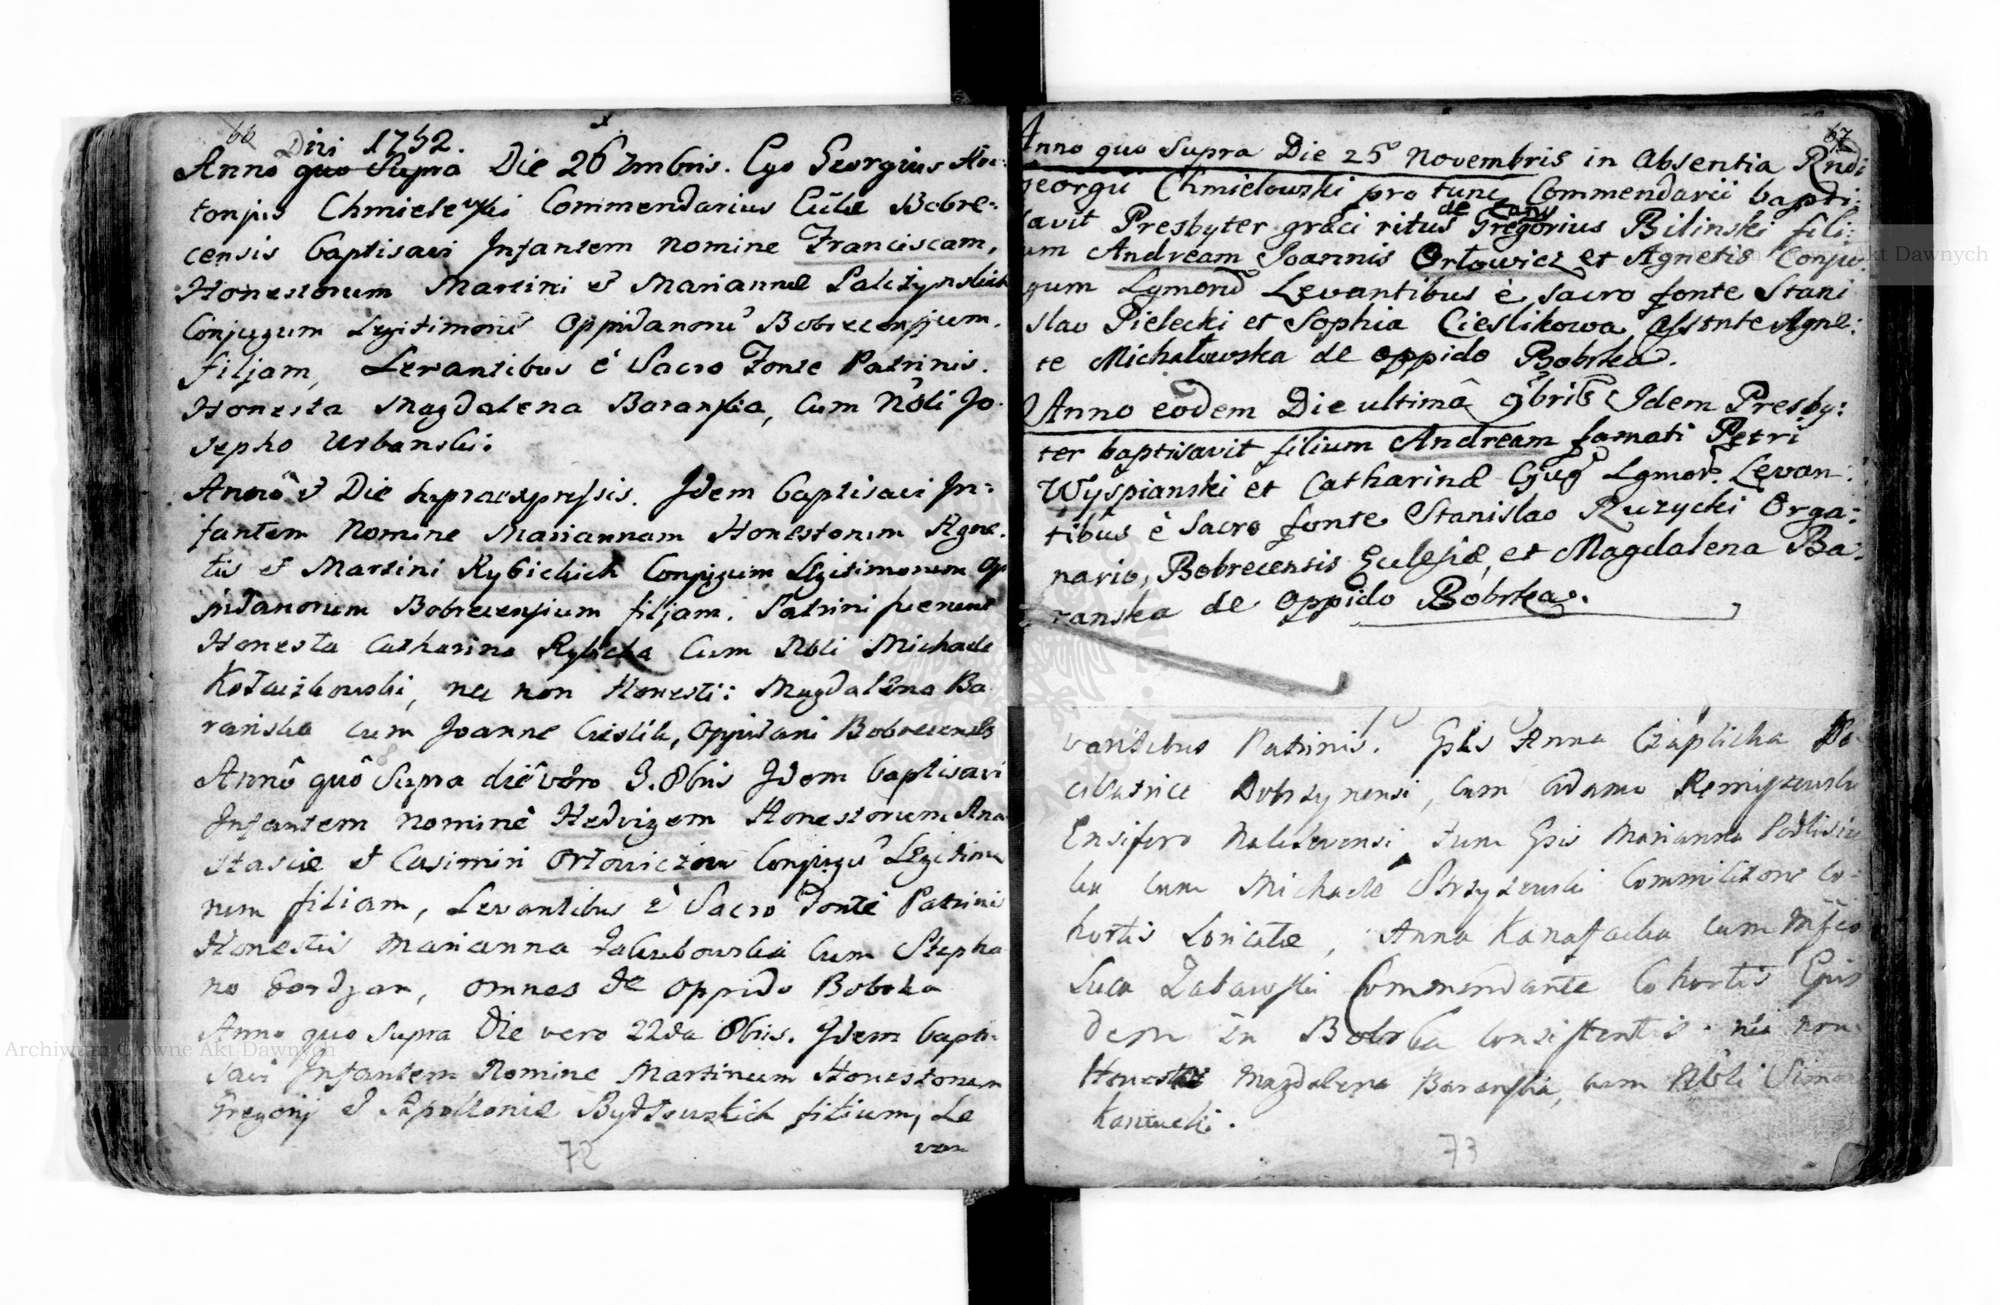 66
Dni 1752.
Anno quo Supra Die 26 Xmbris. Ego Georgius An-
tonjus Chmielewski Commendarius Ecclae Bobre-
censis baptisavi Infantem nomine Franciscam,
Honestorum Martini et Mariannae
Conjugum Legitimorū Oppidanorū Bobrecensium.
filjam, Levantibus è Sacro Fonte Patrinis.
Honesta Magdalena Baranska, Cum Nobli Jo-
sepho Urbanski:
Anno et Die supraexpressis. Idem baptisavi In-
fantem Nomine Mariannam Honestorum Agne-
tis et Martini Rybickich Conjugum Legitimorum Op
pidanorum Bobrecensium filjam. Patrini fuerunt
Honesta Catharina Rybicka Cum Nobli Michaele
Kołaczkowski, nec non Honesti: Magdalena Ba
ranska cum Joanne Cieslik, Oppidani Bobrecenses
Annô quô Supra diê vero 3. 8bris Idem baptisavi
Infantem nominê Hedvigem Honestorum Ana
stasiae et Casimiri Ortowiczow Conjugū Legitimo
rum filiam, Levantibus è Sacro Fonte Patrinis
Honestis Marianna Jakubowska Cum Stepha
no, omnes de Oppido Bobrka
Anno quo Supra Die vero 22da 8bris. Idem bapti-
savi Infantem Nomine Martinum Honestorum
Gregorij et Apolloniae filium, Le
van
72
67
Anno quo Supra Die 25o Novembris in absentia Rndi
Georgii Chmielowski pro tunc Commendarii bapti-
savit Presbyter graeci ritus de Gregorius Bilinski fili-
um Andream Joannis Ortowicz et Agnetis Conju-
gum Lgmorū Levantibus è sacro fonte Stani
slao Pielecki et Sophia Cieslikowa assnte Agne:
te Michałowska de oppido Bobrka.
Anno eodem Die ultimâ 9bris Idem Presby:
ter baptisavit filium Andream famati Petri
Wyspianski et Catharinae Cjug Lgmor. Levan:
tibus è sacro fonte Stanislao Ruzycki Orga:
nario, Bobrecensis Eclesiae, et Magdalena Ba:
ranska de oppido Bobrka.
vantibus Patrinis. Gsis Anna Czaplicka
Dobrzynensi, cum Adamo
Ensifero, tum Gsis Marianna
cum Michaele Strzyzewski Commilitone Co-
hortis Loricatae, Anna Kanafacka cum
Luca Commendante Cohortis Ejus
dem in Bobrka consistentis. nec non
Honesta Magdalena Baranska, cum Nobli Simone
73
Archiwum Główne Akt Dawnych
Akt Dawnych